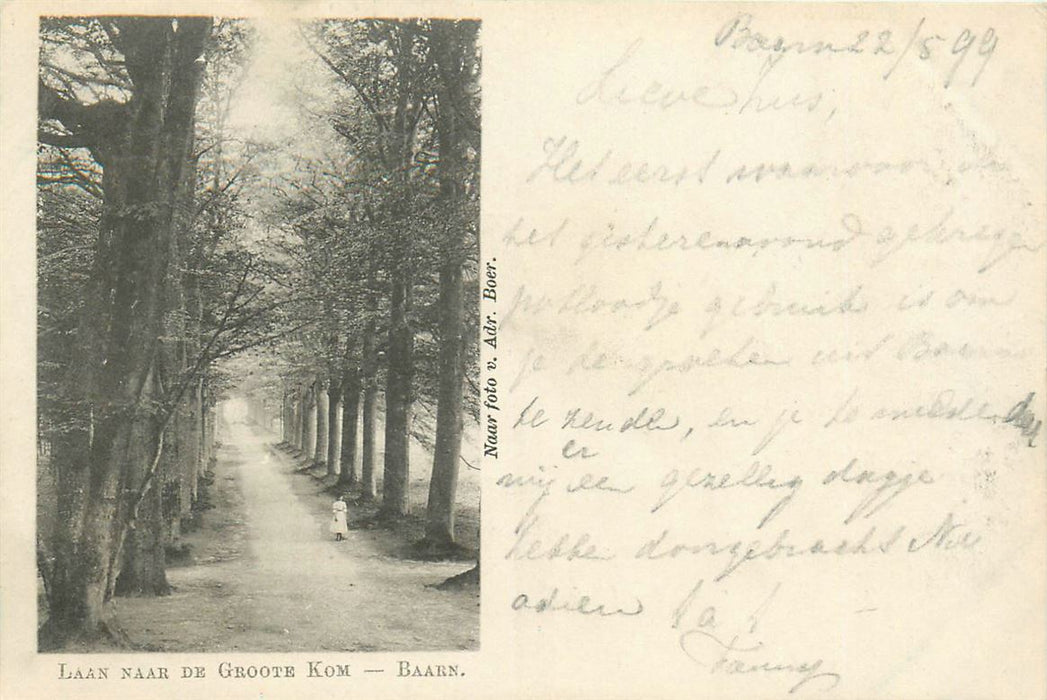 Baarn 22/5 99
Lieve
Het eerst waarvoor
het gisterenavond gekregen
potloodje gebruik is om
je de groeten uit Baarn
te zenden, en je te
mij er een gezellig dagje
hebbe doorgebracht Nu
adieu
Fanny
Naar foto v. Adr. Boer.
Laan naar de Groote Kom — Baarn.